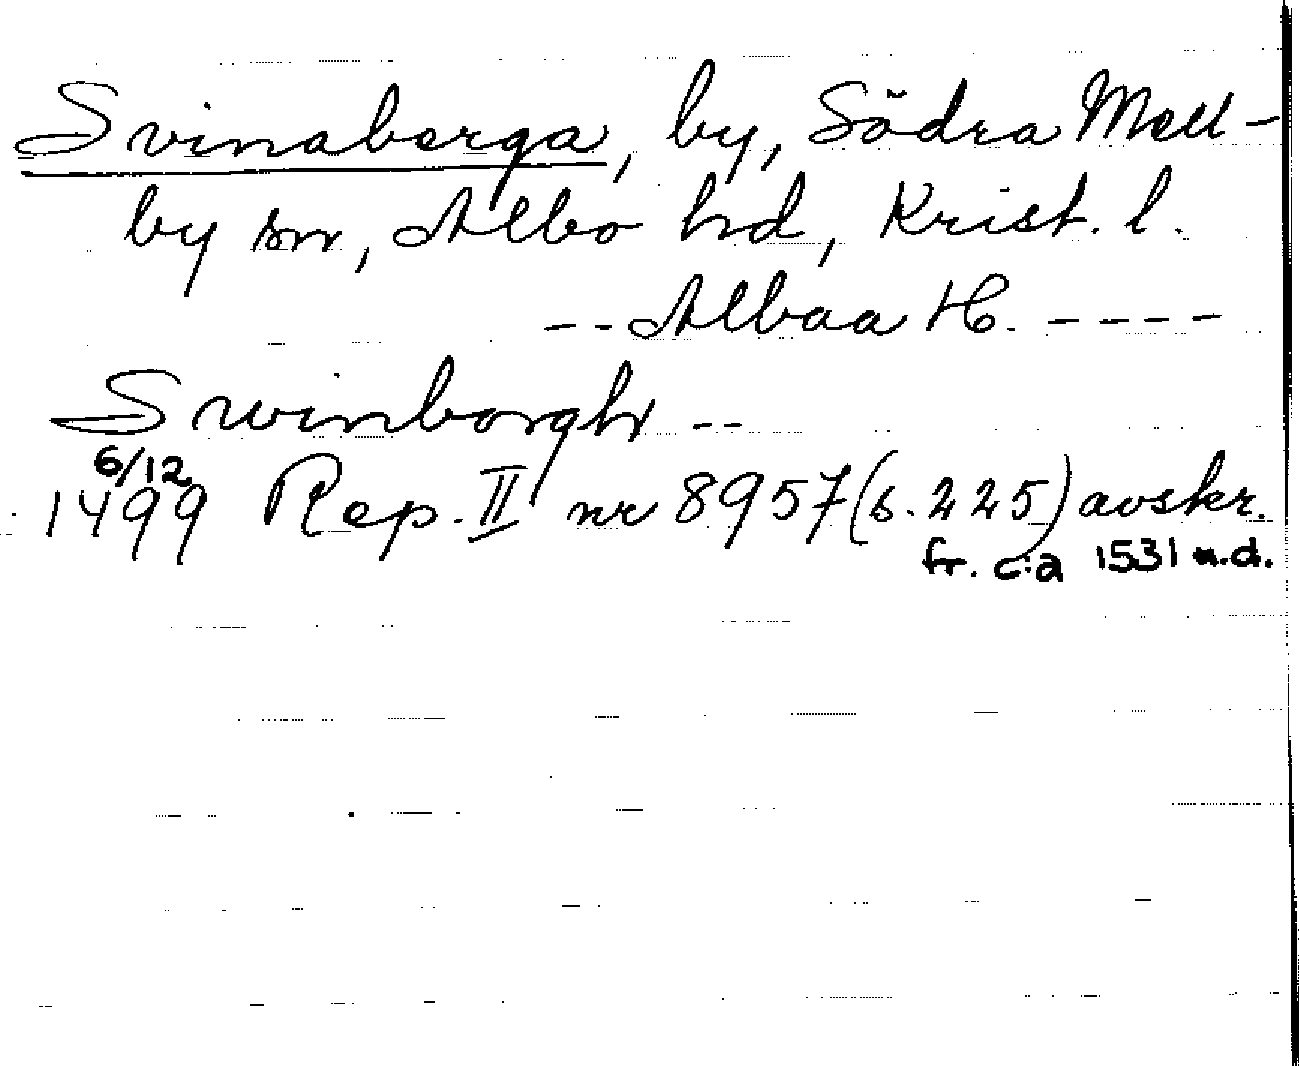 Svinaberga, by, Södra Mell-
by sn, Albo hd, Krist. l.
-- Albaa H. ----
Swinborgh --
6/12
1499 Rep. II nr 8957 (s. 225) avskr.
fr. c:a 1531 n.d.